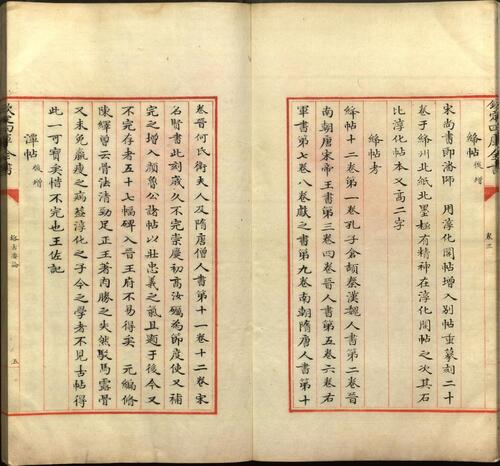 欽定四庫全書
卷三
絳帖後增
宋尚書即潘師 用淳化閣帖增入别帖重摹刻二十
卷于絳州北紙北墨極有精神在淳化閣帖之次其石
比淳化帖本又高二字
絳帖考
絳帖十二卷第一卷孔子倉頡秦漢魏人書第二卷晉
南朝唐宋帝王書第三卷四卷晉人書第五卷六卷右
軍書第七卷八卷獻之書第九卷南朝隋唐人書第十
卷晉何氏衛夫人及隋唐僧人書第十一卷十二卷宋
名賢書此刻歲久不完崇慶初高汝礪為節度使又補
完之增入顔魯公諸帖以壯忠義之氣且題于後今又
不完存者五十七幅碑入晉王府不易得矣 元編修
陳繹曾云骨法清勁足正王著肉勝之失然駿馬露骨
又未免羸瘦之病盖淳化之子今之學者不見古帖得
此一可寳矣惜不完也王佐記
潭帖後增
欽定四庫全書
格古要論
五